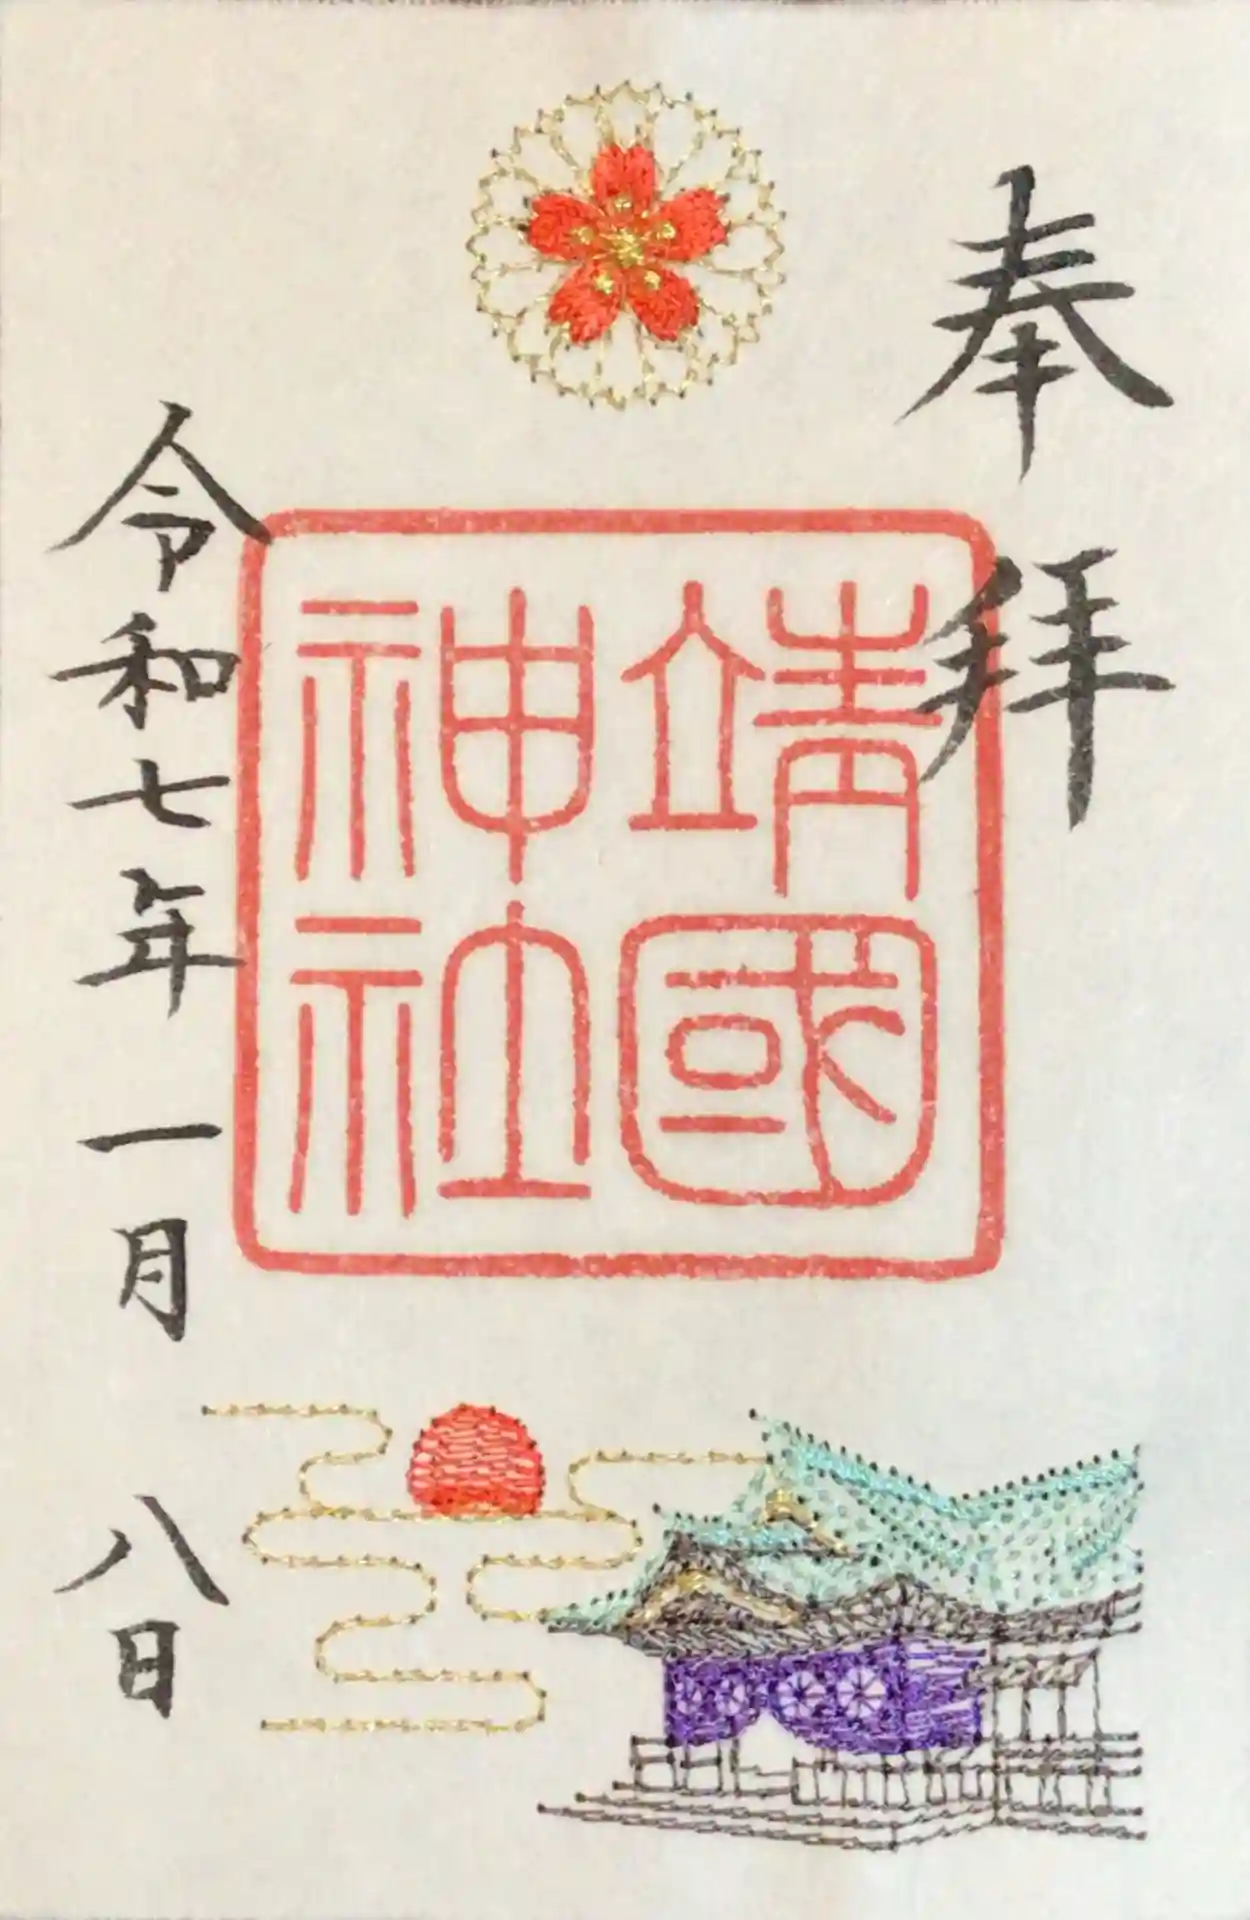 奉拝
靖國
神社
令和七年一月八日